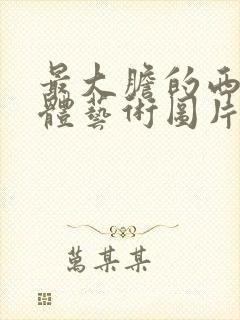 最大膽的西
體藝術圖片
萬某某